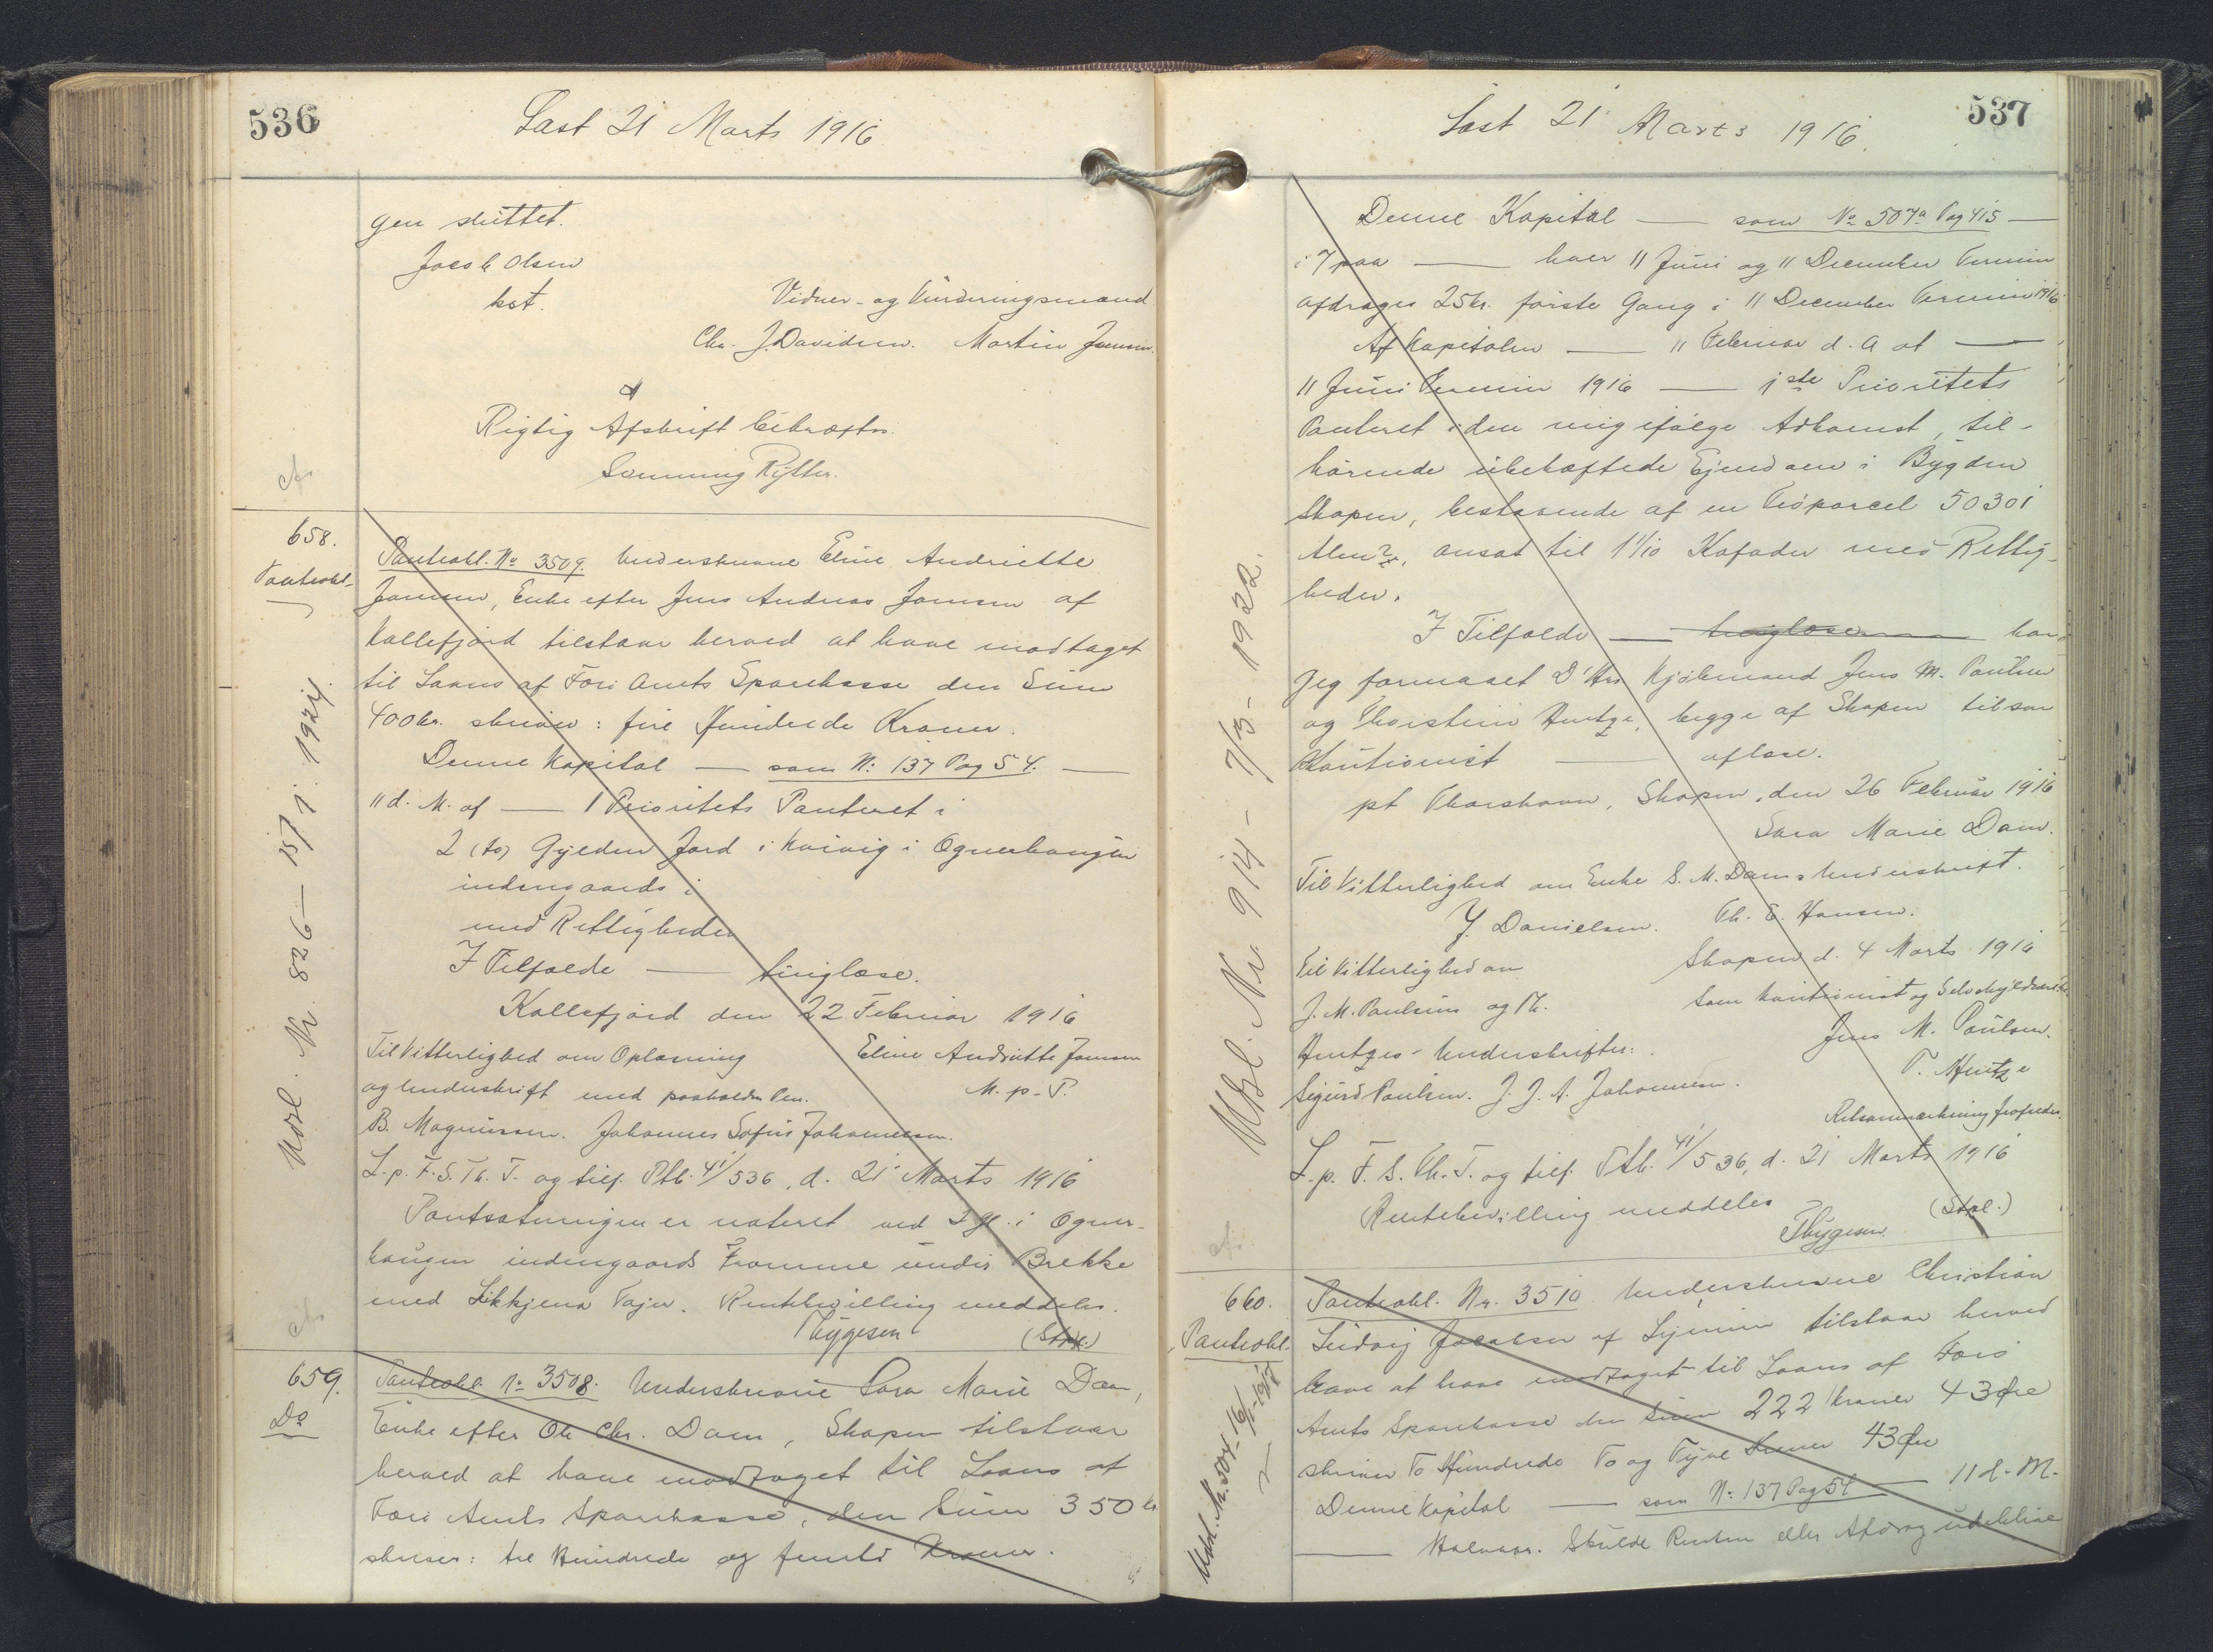 536
Læst 21 Marts 1916
gen sluttet.
Jacob Olsen
kst.
Vidner- og Vurderingsmænd
Chr. J. Davidsen. Martin Joensen.
Rigtig Afskrift bekræftes.
Rytter.
658.
Panteobl.
Udsl. Nr. 826 — 15/1. 1924.
Panteobl. No 3509. Underskrevne Eline Andriette
Jamsen, Enke efter Jens Andreas Jamsen af
Kollefjord tilstaar herved at have modtaget
til Laans af Færø Amts Sparekasse den Sum
400 kr. skriver: fire Hundrede Kroner.
Denne Kapital — som N: 137 Pag 54. —
11 d. M. af — 1 Prioritets Panteret i
2 (to) Gylden Jord i Kvivig i Ognerhaugen
indengaards i
med Rettigheder
I Tilfælde — tinglæse.
Kollefjord den 22 Februar 1916
Til Vitterlighed om Oplæsning
Eline Andriette Jamsen
og Underskrift med paaholden Pen.
M. p. P.
B. Magnussen. Johannes Sofus Johannesen.
L. p. F. S. Th. T. og tilf. Ptb. 41/536, d. 21 Marts 1916
Pantsætningen er noteret ved 2 gl. i Ogner-
haugen indengaards Framme under Brekke
med Likkjena Tajer. Rentebevilling meddeles.
Thygesen
(Stpl.)
659.
Do
Panteobl. No 3508. Underskrevne Sara Marie Dam,
Enke efter Ole Chr. Dam, Skopen tilstaar
herved at have modtaget til Laans af
Færø Amts Sparekasse, den Sum 350 kr
skriver: tre Hundrede og femti Kroner.
537
Læst 21 Marts 1916.
Denne Kapital — som No 507a Pag 415 —
i 7 paa — hver 11 Juni og 11 December Termin
afdrages 25 kr. første Gang i 11 December Termin 1916
Af Kapitalen — 11 Februar d. A at —
11 Juni Termin 1916 — 1ste Prioritets
Panteret i den mig ifølge Adkomst, til-
hørende ubehæftede Ejendom i Bygden
Skopen, bestaaende af en Trøparcel 50301
Alen2, ansat til 1 1/10 Kofoder med Rettig-
heder.
I Tilfælde — tinglæse — har
Jeg formaaet D'Hrr. Kjøbmand Jens M. Paulsen
og Thorstein Hentze, begge af Skopen til som
Kautionist — aflæse.
pt Thorshavn, Skopen, den 26 Februar 1916
Sara Marie Dam.
Til Vitterlighed om Enke S. M. Dams Underskrift.
Y. Danielsen. Th. E. Hansen.
Til Vitterlighed om
Skopen d. 4 Marts 1916
J. M. Paulsens og Th.
Som Kautionist og Selvskyldnere
Hentzes Underskrifter:
Jens M. Paulsen.
Sigurd Paulsen. J. J. A. Johannesen.
T. Hentze
Retsanmærkning frafaldes.
L. p. F. S. Th. T. og tilf. Ptb. 41/536, d. 21 Marts 1916
Rentebevilling meddeles
Thygesen
(Stpl.)
Udsl. Nr. 914 - 7/3 - 1922.
660.
Panteobl.
Udsl. Nr. 504
Panteobl. Nr. 3510 Underskrevne Christian
Ludvig Jacobsen af Sejsum tilstaar herved
have at have modtaget til Laans af Færø
Amts Sparekasse den Sum 222 Kroner 43 Øre
skriver To Hundrede To og Tyve Kroner 43 Øre
Denne Kapital — som N: 137 Pag 54 — 11 d. M.
— Halvaar. Skulde Renten eller Afdrag udeblive